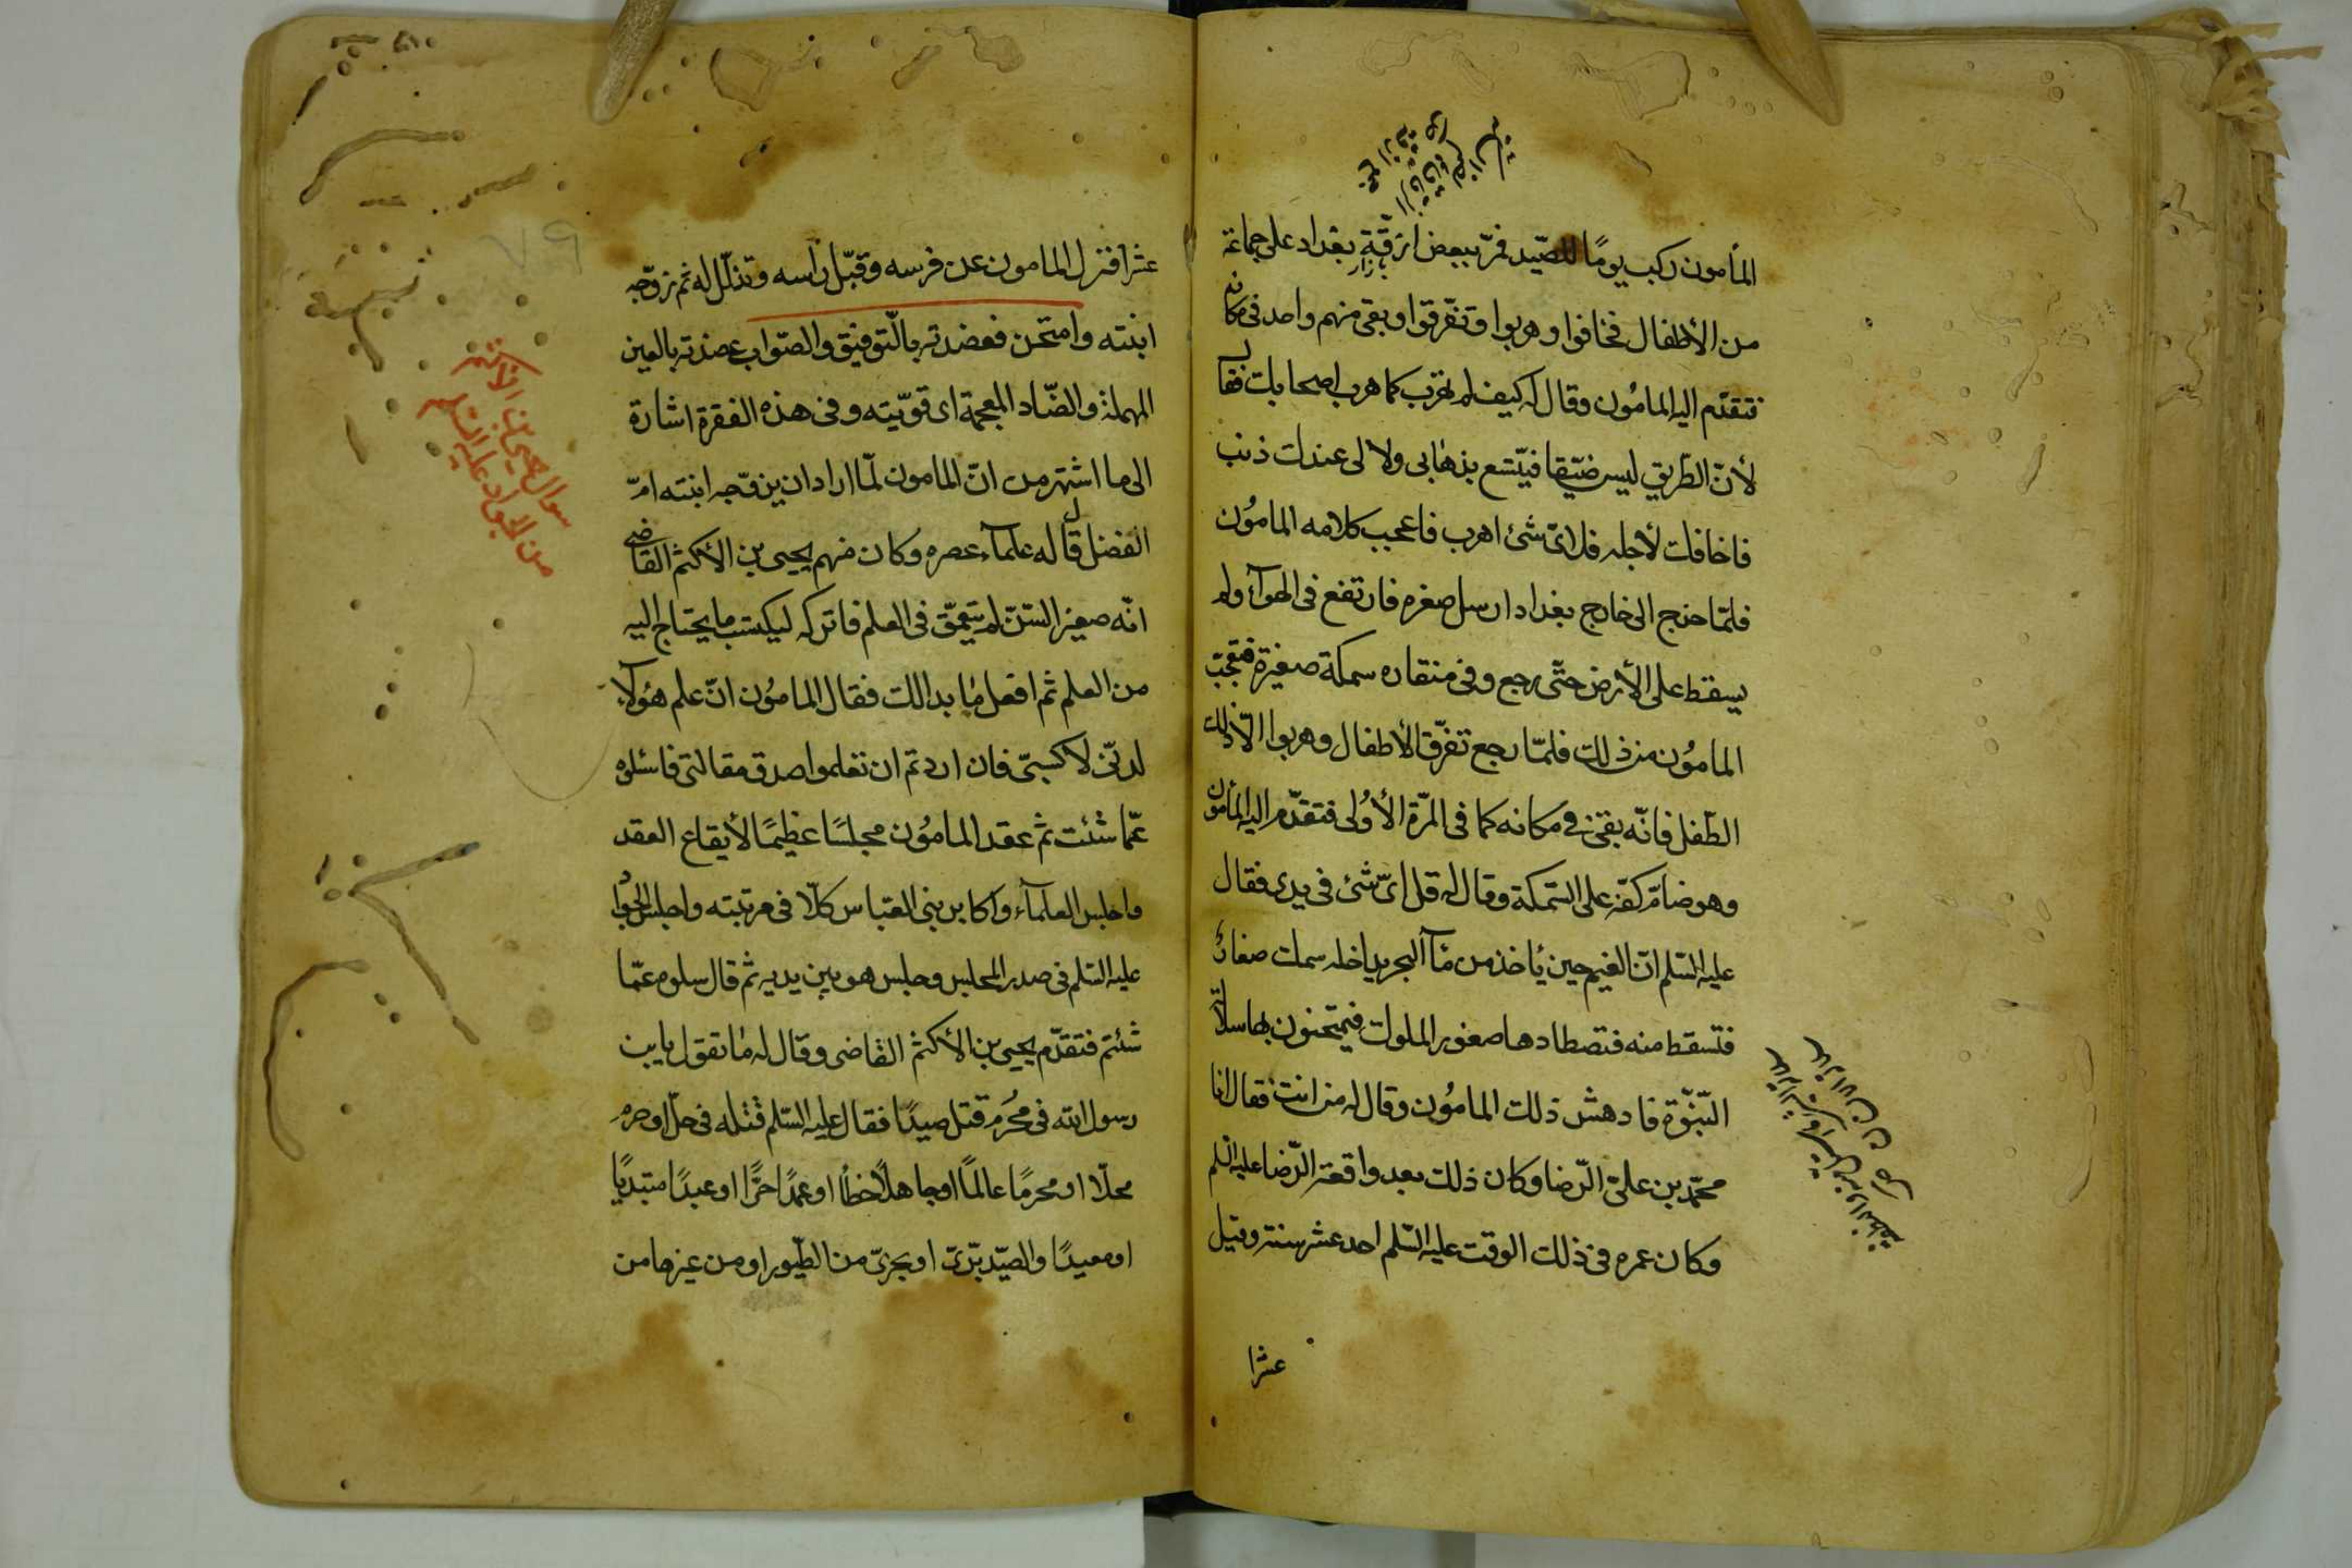 المأمون ركب يومًا للصّيد فمرّ ببعض ازقّة بغداد على جماعة
من الأطفال فخافوا وهربوا وتفرّقوا وبقى منهم واحد فى مكانه
فتقدّم اليه المامُون وقال له كيف لم تهرب كما هرب اصحابك فقال
لأنّ الطّريق ليس ضيّقا فيتّسع بذهابى ولا لى عندك ذنب
فاخافك لأجله فلاىّ شئ اهرب فاعجب كلامه المامُون
فلمّا خرج الى خارج بغداد ارسل صقره فارتفع فى الهوآء ولم
يسقط على الأرض حتّى رجع وفى منقاره سمكة صغيرة فتعجّب
المامُون من ذلك فلمّا رجع تفرّق الأطفال وهربوا الّا ذلك
الطّفل فانّه بقى فى مكانه كما فى المرّة الأولى فتقدّم اليه المأمون
وهو ضامّ كفّه على السّمكة وقال له قل اىّ شئ فى يدى فقال
عليه السّلم انّ الغيم حين يأخذ من مآء البحر يداخله سمك صغار
فتسقط منه فتصطادها صقور الملوك فيمتحنون بها سلالة
النّبوّة فادهش ذلك المامُون وقال له من انت فقال انا
محمّد بن علىّ الرّضا وكان ذلك بعد واقعة الرّضا عليه السّلم
وكان عمره فى ذلك الوقت عليه السّلم احد عشر سنة وقيل
عشرا
عشرا فنزل المامون عن فرسه وقبّل رأسه وتذلّل له ثم زوّجه
ابنته وامتحن فعضدته بالتّوفيق والصّواب عضدته بالعين
المهملة والضّاد المعجمة اى قوّيته وفى هذه الفقرة اشارة
الى ما اشتهر من انّ المامون لمّا اراد ان يزوّجه ابنته امّ
الفضل قال له علمآء عصره وكان منهم يحيى بن الأكثم القاضى
انّه صغير السّنّ لم يتعمّق فى العلم فاتركه ليكتسب ما يحتاج اليه
من العلم ثم افعل ما بدا لك فقال المامُون انّ علم هؤلآء
لدنّى لا كسبىّ فان اردتم ان تعلموا صدق مقالتى فاسئلوه
عمّا شئت ثم عقد المامُون مجلسًا عظيمًا لأيقاع العقد
واجلس العلمآء واكابر بنى العبّاس كلّا فى مرتبته واجلس الجواد
عليه السّلم فى صدر المجلس وجلس هو بين يديه ثم قال سلوه عمّا
شئتم فتقدّم يحيى بن الأكثم القاضى وقال له ما تقول يابن
رسول الله فى مُحرم قتل صيدًا فقال عليه السّلم قتله فى حلّ او حرم
محلّا او محرمًا عالمًا او جاهلًا خطأ او عمدًا حرًّا او عبدًا مبتديًا
او معيدًا والصّيد برّىّ او بحرىّ من الطّيور او من غيرها من
سوال يحيى بن الأكثم
من الجواد عليه السّلم
٧٩